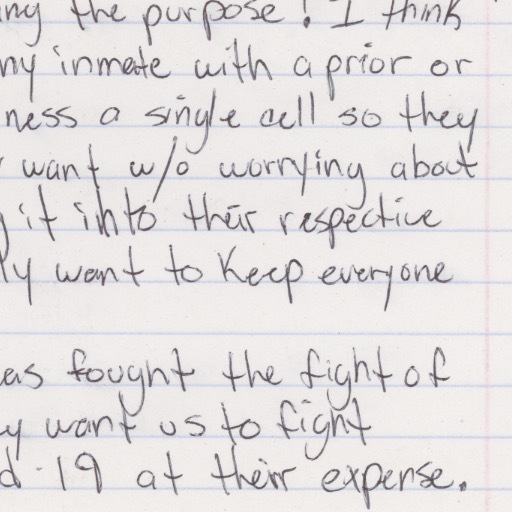 ing the purpose! I think
ny inmate with a prior or
ness a single cell so they
want w/o worrying about
it into their respective
ly want to keep everyone
as fought the fight of
y want us to fight
d-19 at their expense.